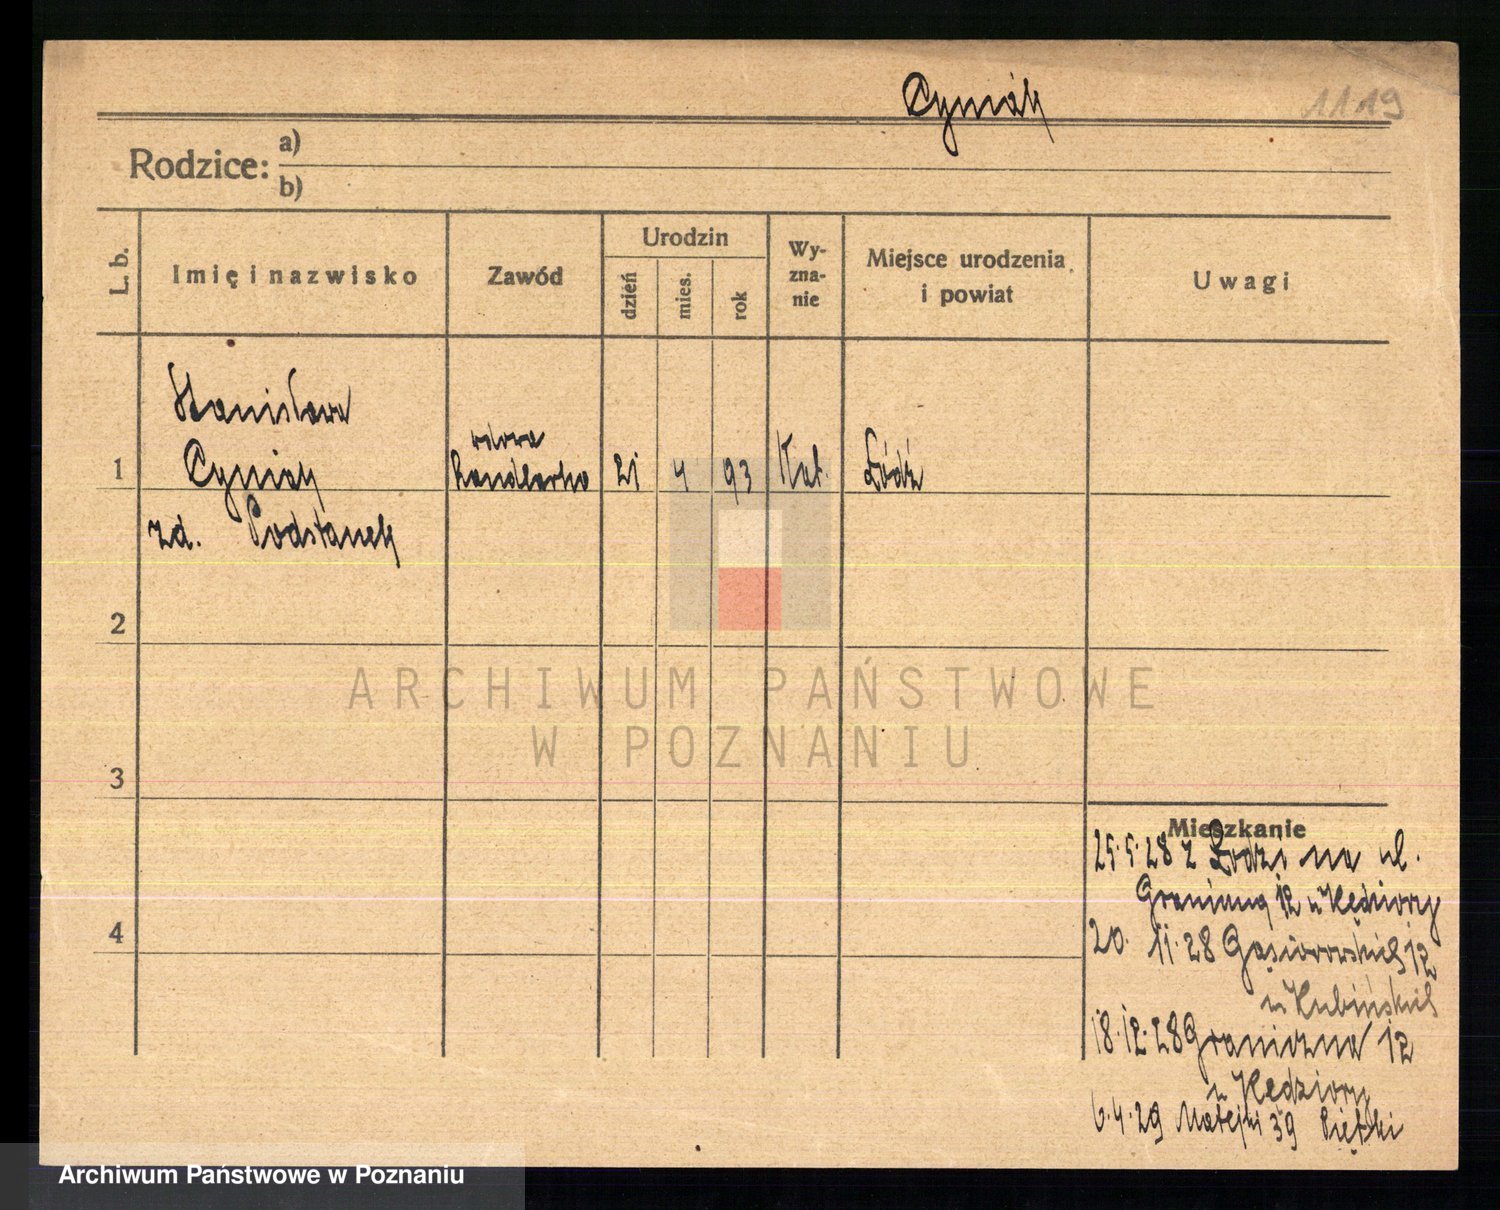 Cyniak
1119
Rodzice: a)
b)
L. b.
Imię i nazwisko
Zawód
Urodzin
dzień
mies.
rok
Wy-
zna-
nie
Miejsce urodzenia
i powiat
Uwagi
Stanisława
1 Cyniak
wdowa
handlarka
21 4 93 Kat. Łódź
zd. Podstanek
2
ARCHIWUM PAŃSTWOWE
W POZNANIU
3
Mieszkanie
25.5.28 z Łodzi na ul.
Graniczną 12 u Kędziory
4
20. 11.28 Gąsiorowskich 12
u Kubińskich
18.12.28 Graniczna 12
u Kędziory
6.4.29 Matejki 39
Archiwum Państwowe w Poznaniu